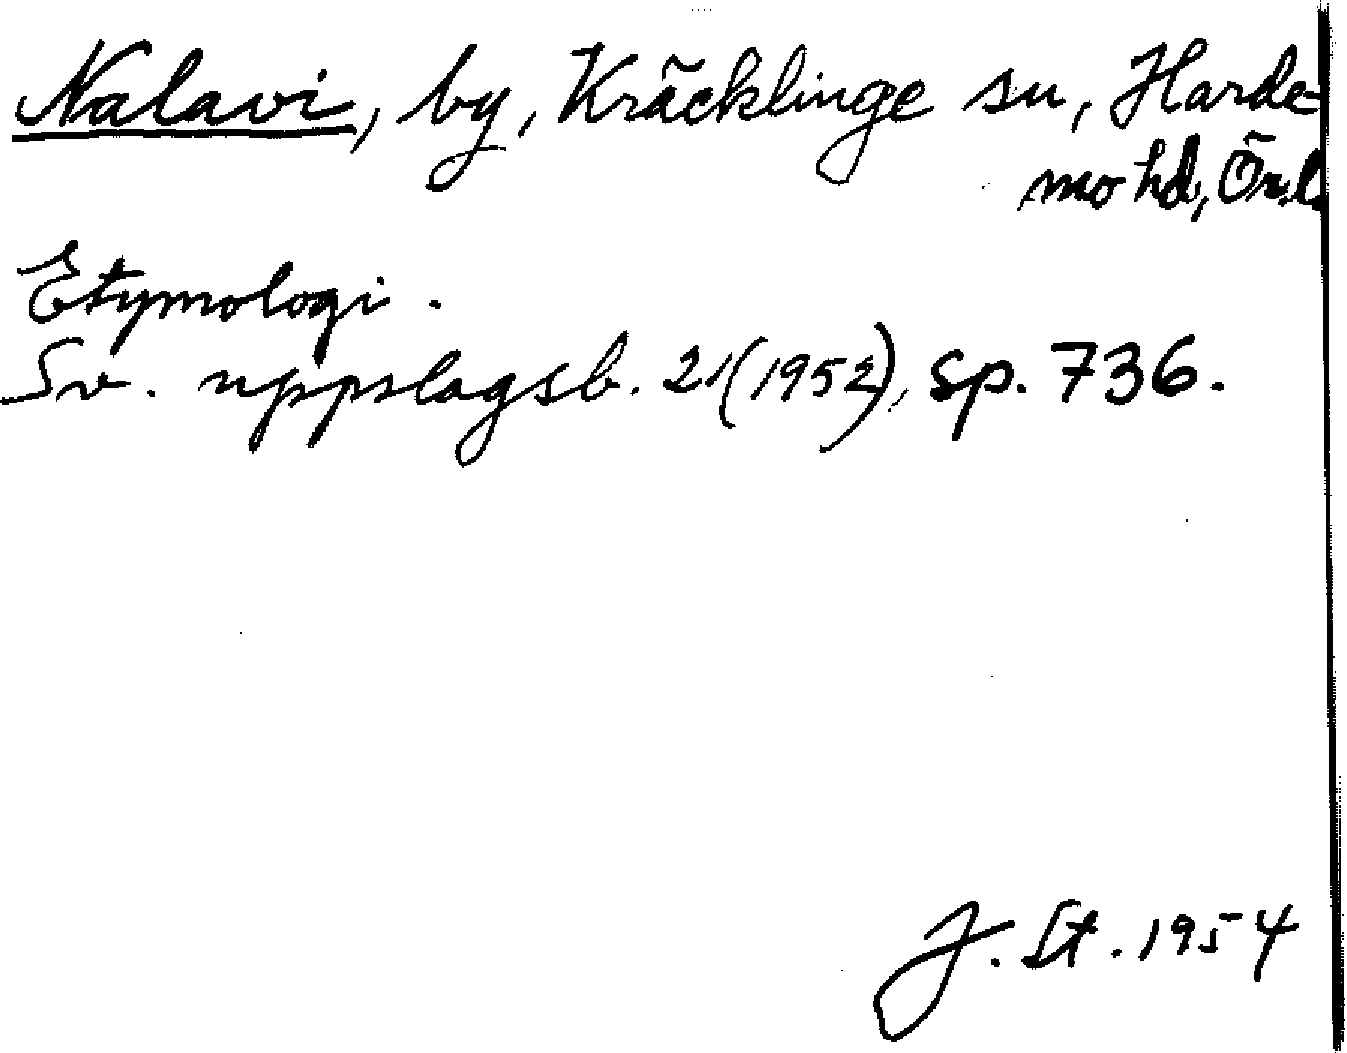 Nalavi, by, Kräcklinge sn, Harde-
mo hd, Ör.l.
Etymologi.
Sv. uppslagsb. 21 (1952), sp. 736.
J. St. 1954